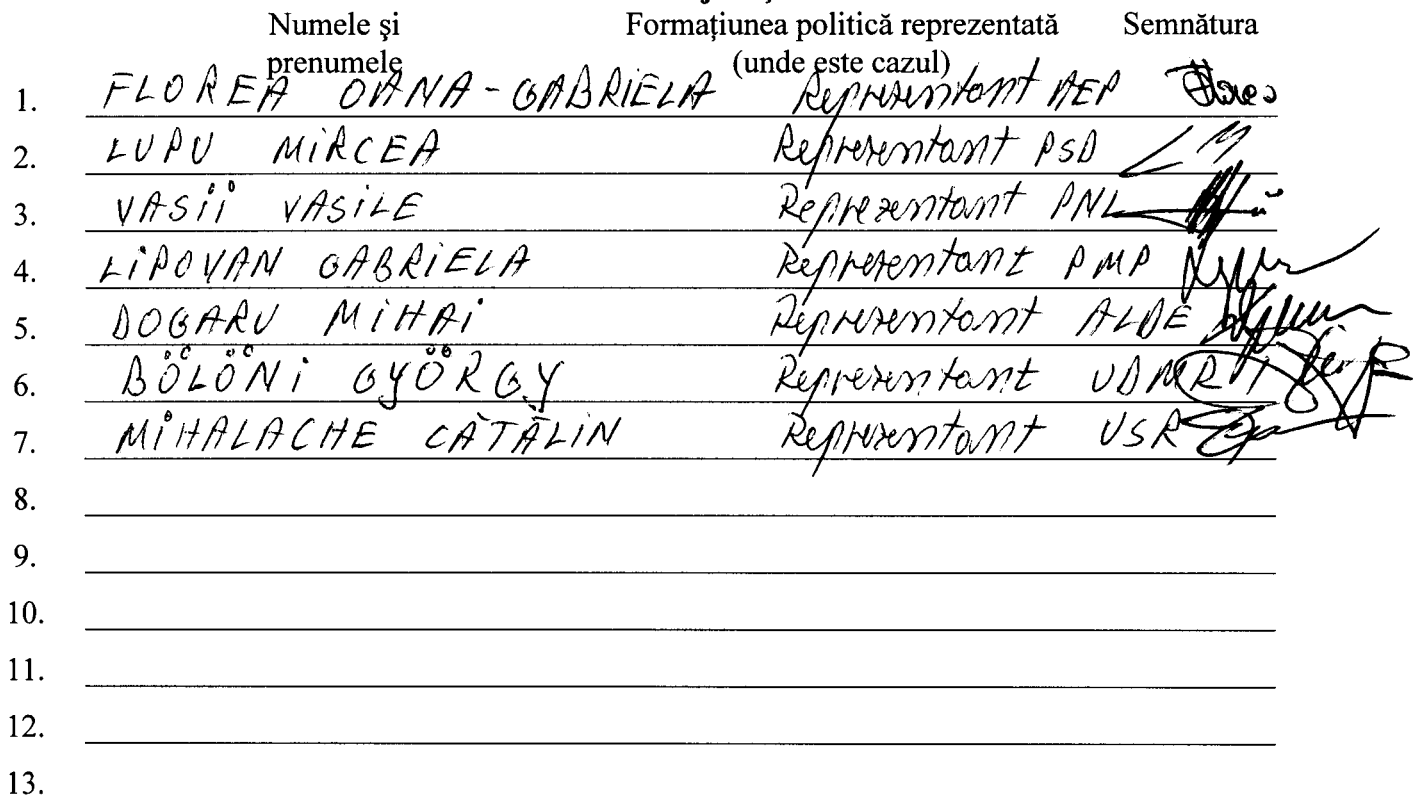 Numele şi Formațiunea politică reprezentată Semnătura
prenumele (unde este cazul)
1. FLOREA OANA-GABRIELA Reprezentant AEP
2. LUPU MIRCEA Reprezentant PSD LM
3. VASII VASILE Reprezentant PNL
4. LIPOVAN GABRIELA Reprezentant PMP
5. DOGARU MIHAI Reprezentant ALDE
6. BÖLÖNI GYÖRGY Reprezentant UDMR
7. MIHALACHE CĂTĂLIN Reprezentant USR
8.
9.
10.
11.
12.
13.